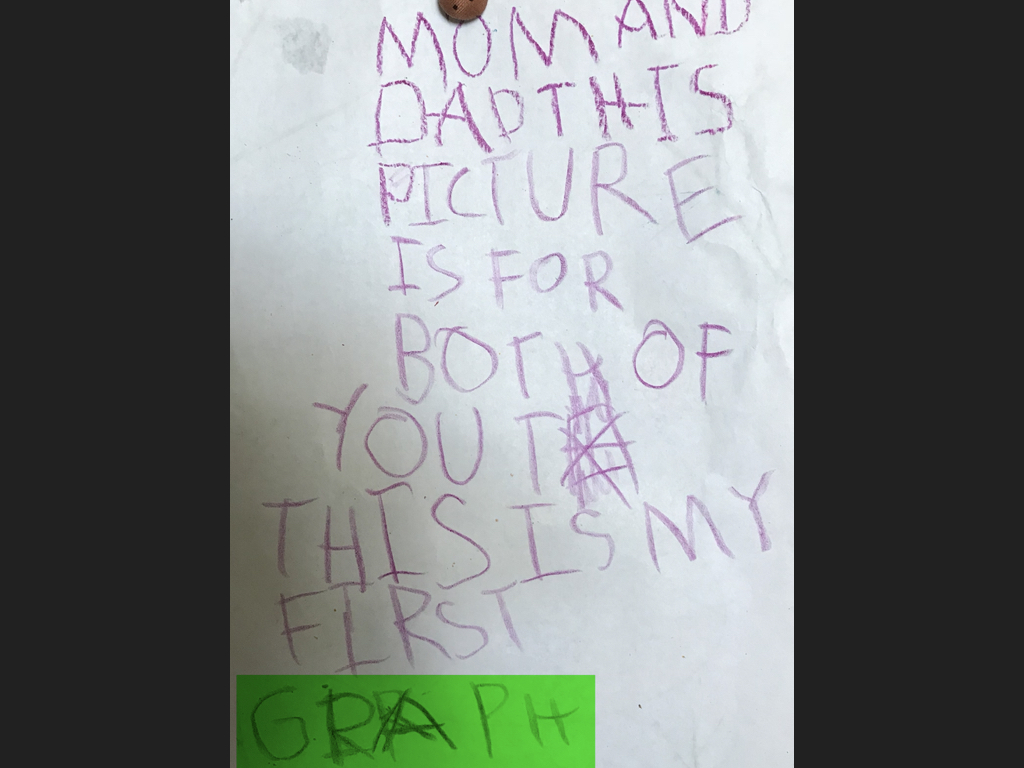 MOM AND
DAD THIS
PICTURE
IS FOR
BOTH OF
YOU
THIS IS MY
FIRST
GRAPH